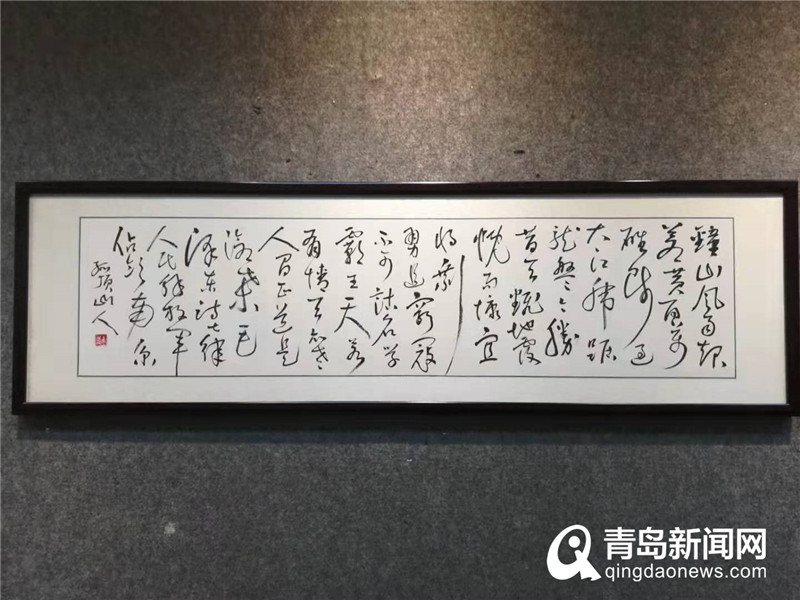 鐘山风雨起
苍黄百万
雄师过
大江虎踞
龙盘今胜
昔天翻地覆
慨而慷宜
将剩
勇追窮寇
不可沽名学
霸王天若
有情天亦老
人间正道是
沧桑毛
泽东诗七律
人民解放军
佔领南京
山人
青岛新闻网
qingdaonews.com